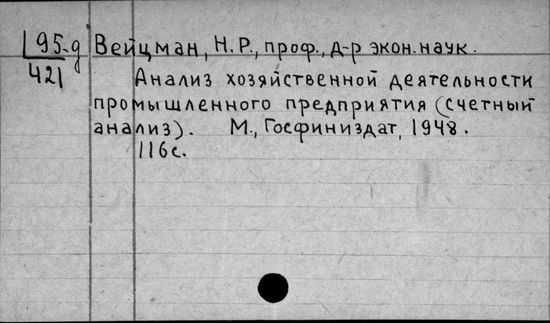 95-д Вейцман, Н.Р., проф., д-р экон. наук.
421
Анализ хозяйственной деятельности
промышленного предприятия (счетный
анализ). М., Госфиниздат, 1948.
116с.